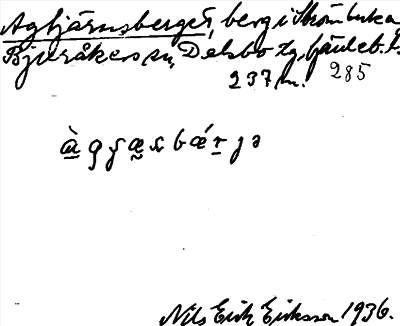 Agbjärnsberget, berg i Strömbacka
Bjuråkers sn, Delsbo tg, Gävleb. l.
237 m. 285
Nils Erik Eriksson 1936.